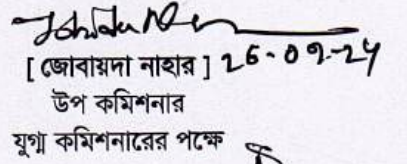 [ জোবায়দা নাহার ] 26-09-24
উপ কমিশনার
যুগ্ম কমিশনারের পক্ষে